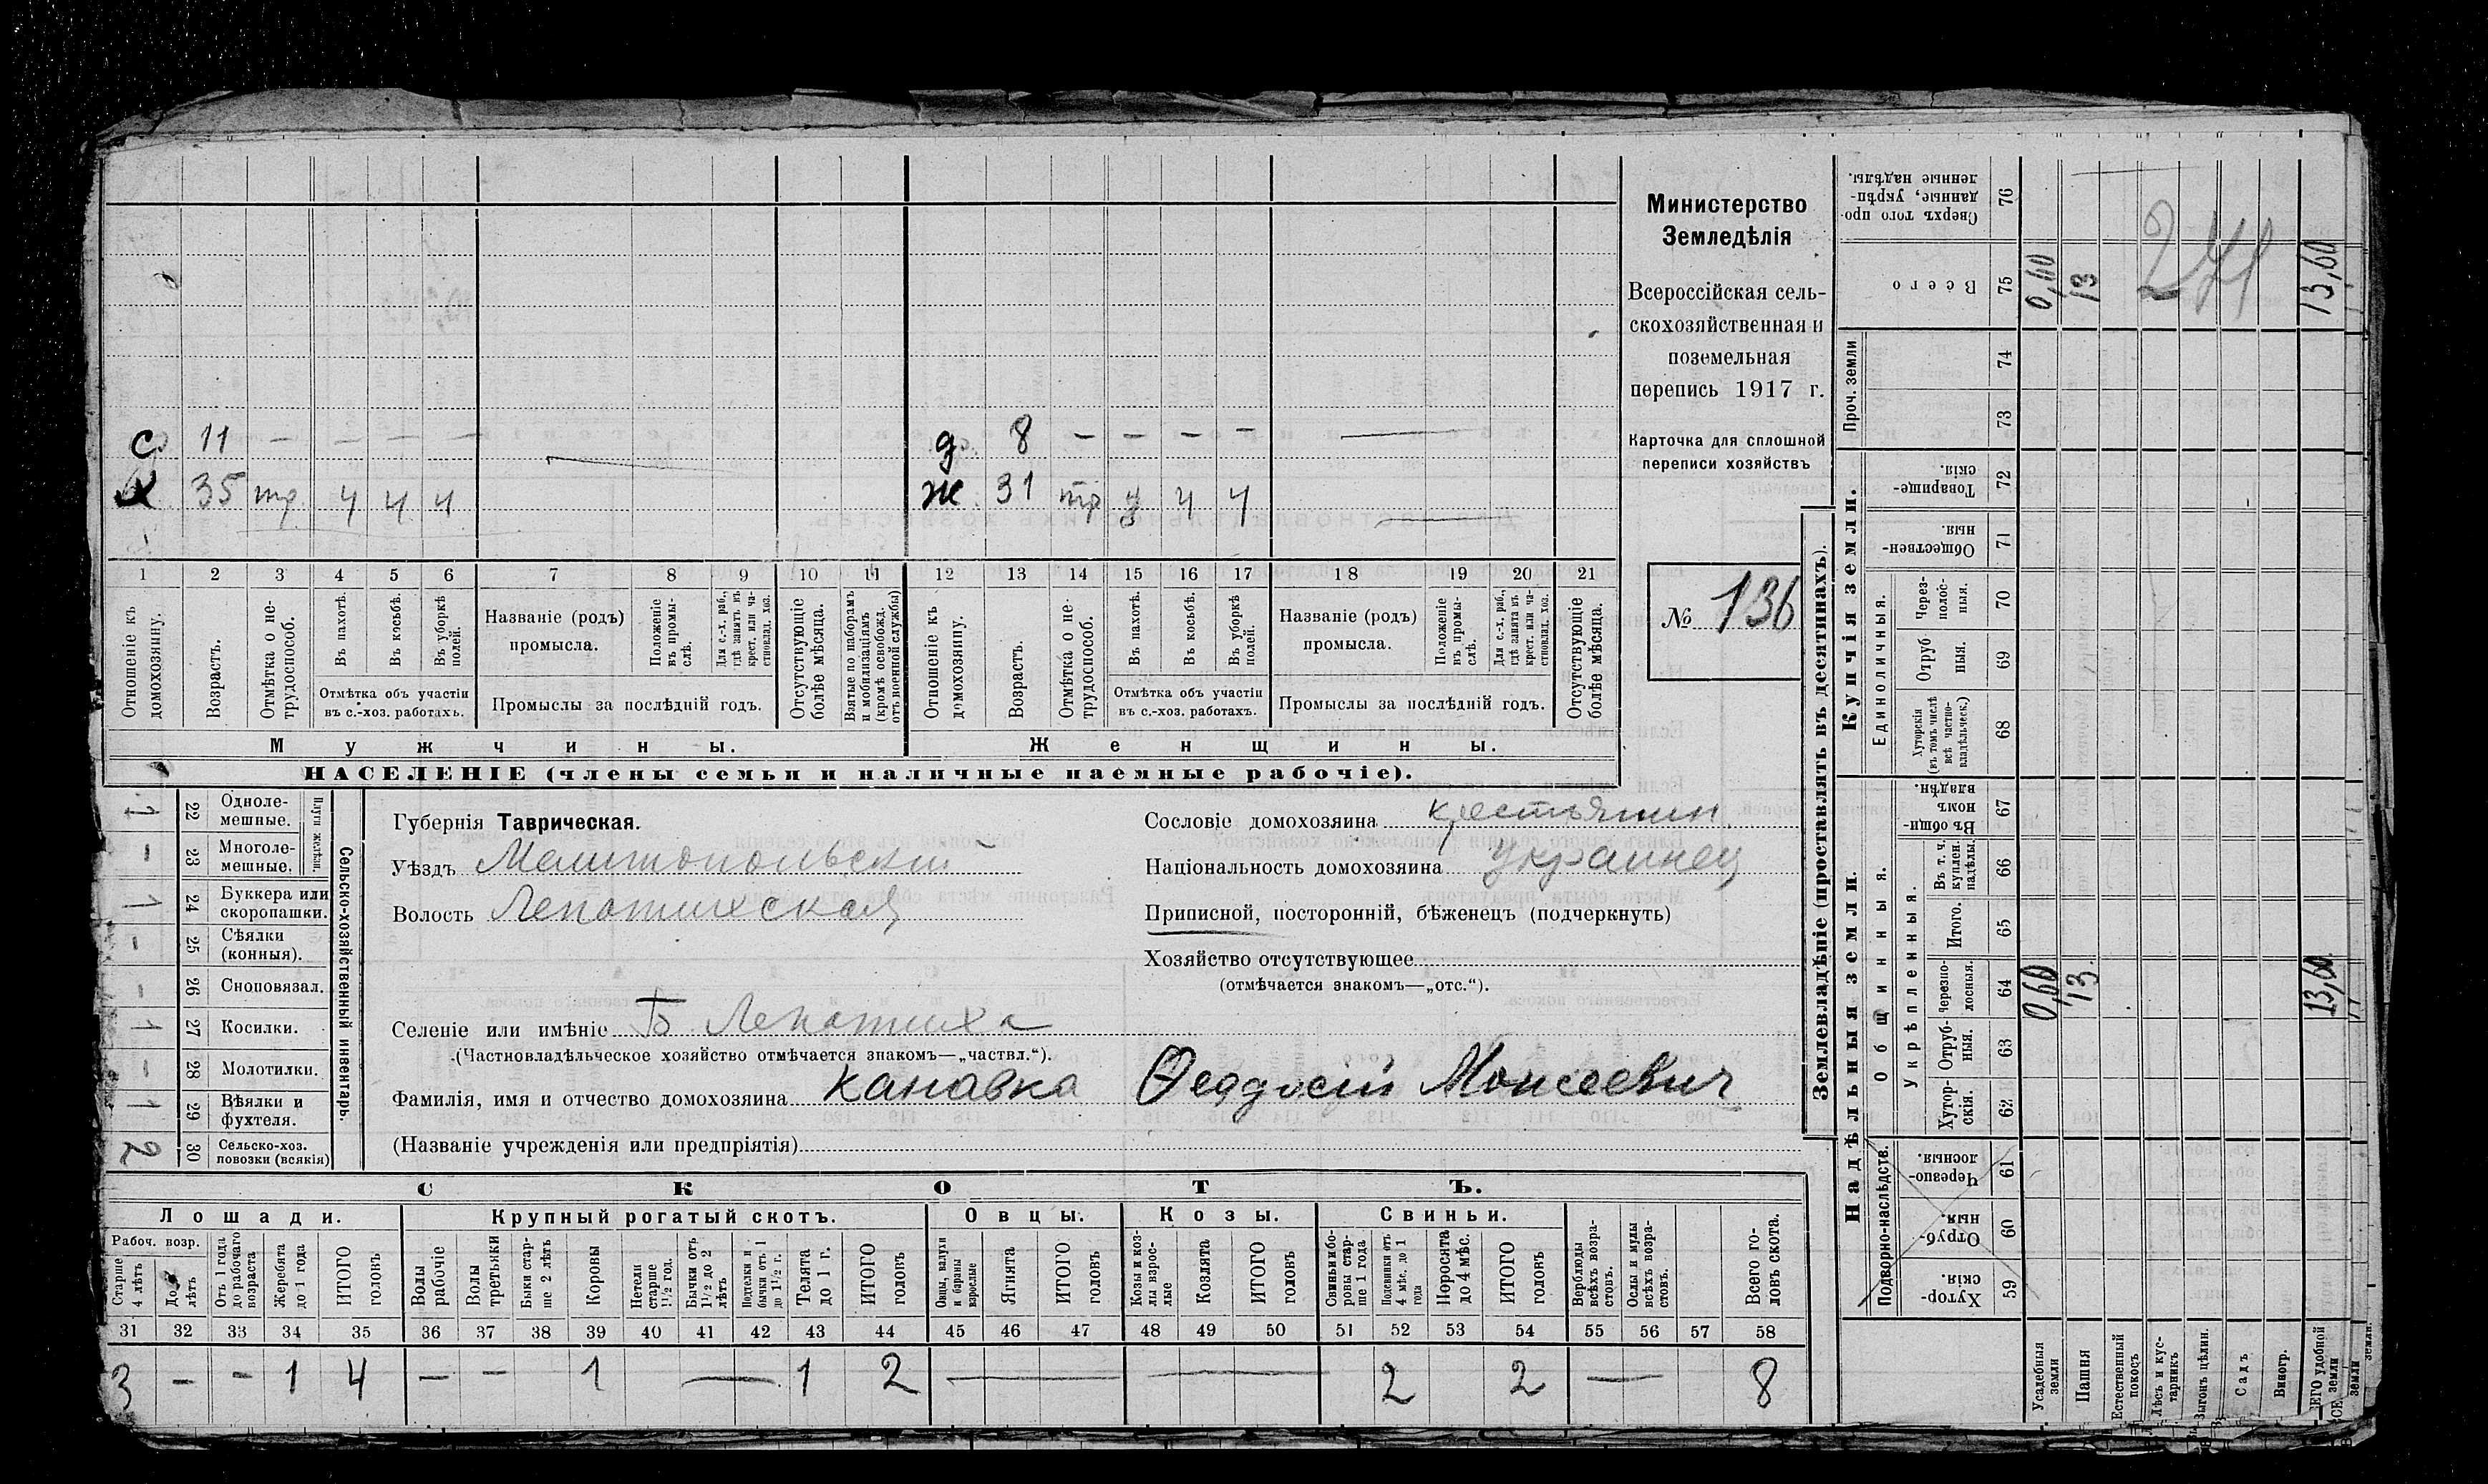 с 11 — — — —
х 35 тр. ч ч ч
д. 8 — — — —
ж 31 тр ч ч ч
1 2 3 4 5 6 7 8 9 10 11 12 13 14 15 16 17 18 19 20 21
Отношеніе къ домохозяину.
Возрастъ.
Отмѣтка о нетрудоспособ.
Въ пахотѣ.
Въ косьбѣ.
Въ уборкѣ полей.
Отмѣтка объ участіи
въ с.-хоз. работахъ.
Названіе (родъ)
промысла.
Положеніе въ промыслѣ.
Для с.-х. раб., гдѣ занятъ въ крест. или частновлад. хоз.
Промыслы за послѣдній годъ.
Отсутствующіе болѣе мѣсяца.
Взятые по наборамъ и мобилизаціямъ (кромѣ освобожд. отъ военной службы)
Отношеніе къ домохозяину.
Возрастъ.
Отмѣтка о нетрудоспособ.
Въ пахотѣ.
Въ косьбѣ.
Въ уборкѣ полей.
Отмѣтка объ участіи
въ с.-хоз. работахъ.
Названіе (родъ)
промысла.
Положеніе въ промыслѣ.
Для с.-х. раб., гдѣ занята въ крест. или частновлад. хоз.
Промыслы за послѣдній годъ.
Отсутствующіе болѣе мѣсяца.
Мужчины.
Женщины.
НАСЕЛЕНІЕ (члены семьи и наличные наемные рабочіе).
Министерство
Земледѣлія
Всероссійская сель-
скохозяйственная и
поземельная
перепись 1917 г.
Карточка для сплошной
переписи хозяйствъ
№ 136
Сельско-хозяйственный инвентарь.
Плуги желѣзн.
22 Одноле-
мешные. 1
23 Многоле-
мешные. —
24 Буккера или
скоропашки. 1
25 Сѣялки
(конныя). —
26 Сноповязал. —
27 Косилки. 1
28 Молотилки. —
29 Вѣялки и
фухтеля. 1
30 Сельско-хоз.
повозки (всякія) 2
Губернія Таврическая.
Уѣздъ Мелитопольскій
Волость Лепатихская
Селеніе или имѣніе Б Лепатиха
(Частновладѣльческое хозяйство отмѣчается знакомъ—„частвл.“).
Фамилія, имя и отчество домохозяина Канавка Феодосій Моисеевич
(Названіе учрежденія или предпріятія)
Сословіе домохозяина крестьянин.
Національность домохозяина украинец
Приписной, посторонній, бѣженецъ (подчеркнуть)
Хозяйство отсутствующее
(отмѣчается знакомъ—„отс.“).
СКОТЪ.
Лошади. Крупный рогатый скотъ. Овцы. Козы. Свиньи.
Рабоч. возр.
Старше 4 лѣтъ
До 4 лѣтъ
Отъ 1 года до рабочаго возраста
Жеребята до 1 года
ИТОГО головъ
Волы рабочіе
Волы третьяки
Быки старше 2 лѣтъ
Коровы
Нетели старше 1 1/2 год.
Бычки отъ 1 1/2 до 2 лѣтъ
Подтелки и бычки отъ 1 до 1 1/2 г.
Телята до 1 г.
ИТОГО головъ
Овцы, валухи и бараны взрослые
Ягнята
ИТОГО головъ
Козы и козлы взрослые
Козлята
ИТОГО головъ
Свиньи и боровы старше 1 года
Подсвинки отъ 4 мѣс. до 1 года
Поросята до 4 мѣс.
ИТОГО головъ
Верблюды всѣхъ возрастовъ.
Ослы и мулы всѣхъ возрастовъ.
Всего головъ скота.
31 32 33 34 35 36 37 38 39 40 41 42 43 44 45 46 47 48 49 50 51 52 53 54 55 56 57 58
3 — — 1 4 — — 1 — 1 2 — — 2 2 — 8
Землевладѣніе (проставлять въ десятинахъ).
Надѣльныя земли.
Купчія земли.
Проч. земли
Сверхъ того проданные, укрѣпленные надѣлы. 76
Всего 75
74
73
Товарищескія. 72
Общественныя 71
Единоличныя.
Черезполосныя. 70
Отрубныя. 69
Хуторскія (въ томъ числѣ всѣ частновладѣльческ.) 68
Общинныя.
Въ общинномъ владѣн. 67
Укрѣпленныя.
Въ т. ч. куплен. надѣлы. 66
Итого. 65
Черезполосныя. 64
Отрубныя. 63
Хуторскія. 62
Подворно-наслѣдств.
Черезполосныя. 61
Отрубныя. 60
Хуторскія. 59
Усадебныя земли
Пашня
Естественный покосъ
Лѣсъ и кустарникъ
Выгонъ цѣлин.
Садъ
Виногр.
0,60 13 13,60
0,60 13. 13,60